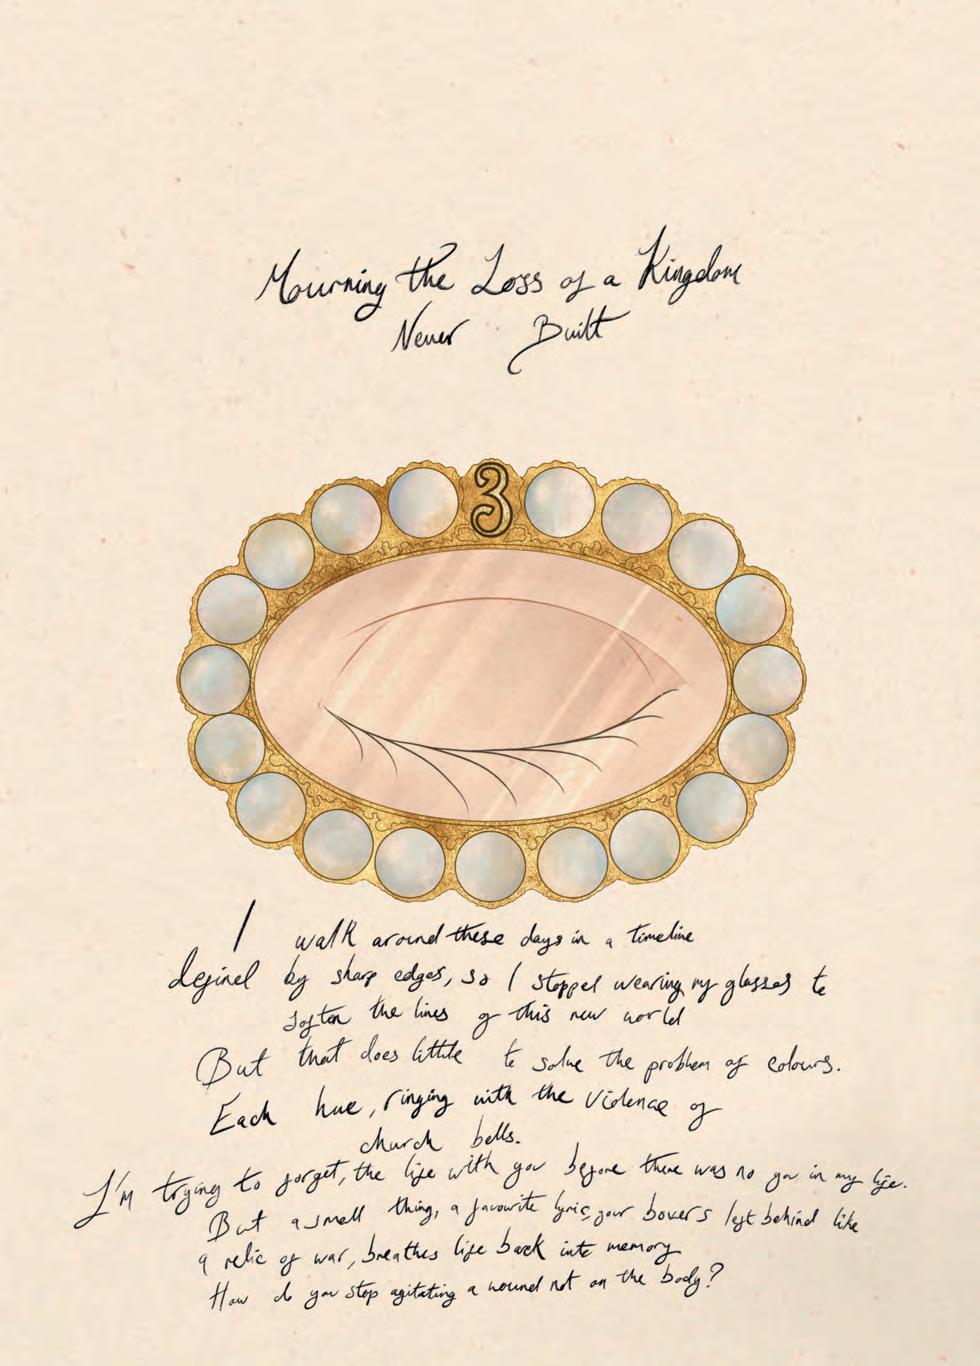 Mourning the Loss of a Kingdom
Never Built
3
I walk around these days in a timeline
defined by sharp edges, so I stopped wearing my glasses to
soften the lines of this new world
But that does little to solve the problem of colours.
Each hue, ringing with the violence of
church bells.
I'm trying to forget, the life with you before there was no you in my life.
But a small thing, a favourite lyric, your boxers left behind like
a relic of war, breathes life back into memory
How do you stop agitating a wound not on the body?